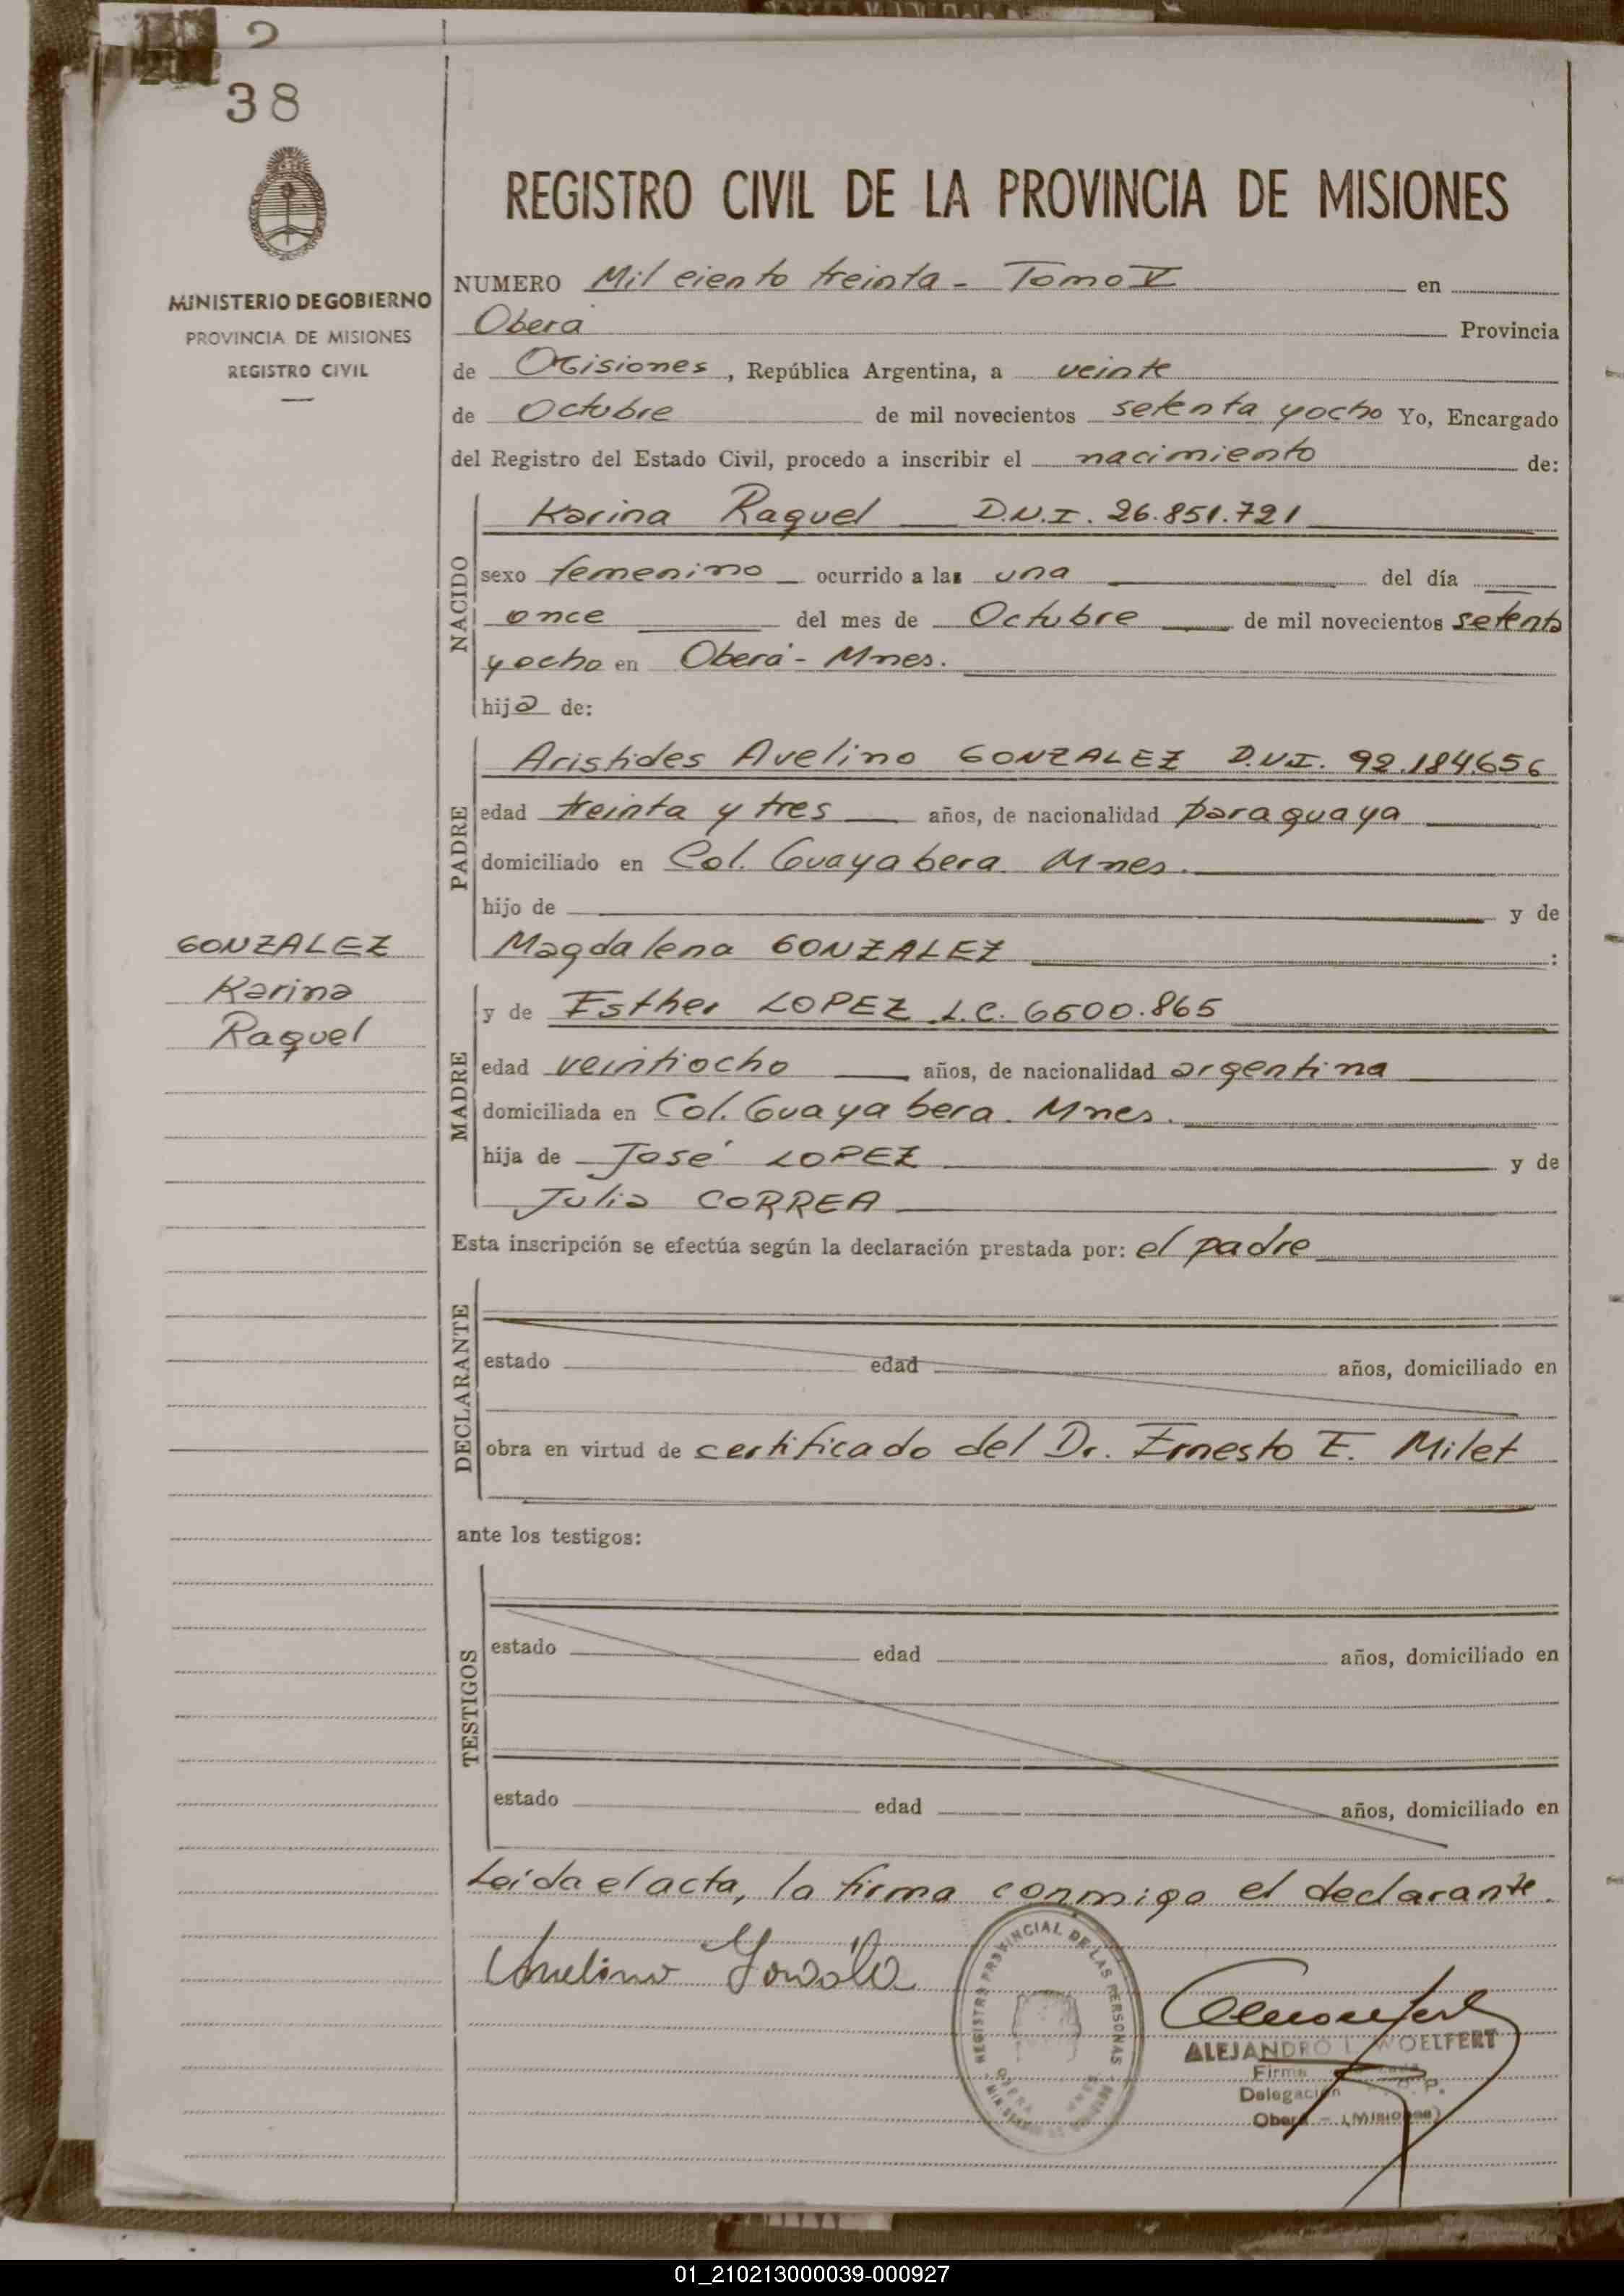 2
38
MINISTERIO DE GOBIERNO
PROVINCIA DE MISIONES
REGISTRO CIVIL
REGISTRO CIVIL DE LA PROVINCIA DE MISIONES
NUMERO Mil ciento treinta - Tomo V en
Oberá Provincia
de Misiones, República Argentina, a veinte
de Octubre de mil novecientos setenta y ocho Yo, Encargado
del Registro del Estado Civil, procedo a inscribir el nacimiento de:
NACIDO
Karina Raquel D.N.I. 26.851.721
sexo femenino ocurrido a las una del día
once del mes de Octubre de mil novecientos setenta
y ocho en Oberá - Mnes.
hija de:
PADRE
Aristides Avelino GONZALEZ D.N.I. 92.184.656
edad treinta y tres años, de nacionalidad paraguaya
domiciliado en Col. Guayabera. Mnes.
hijo de y de
Magdalena GONZALEZ :
GONZALEZ
Karina
Raquel
MADRE
y de Esther LOPEZ L.C. 6600.865
edad veintiocho años, de nacionalidad argentina
domiciliada en Col. Guayabera. Mnes.
hija de José LOPEZ y de
Julia CORREA
Esta inscripción se efectúa según la declaración prestada por: el padre
DECLARANTE
estado edad años, domiciliado en
obra en virtud de certificado del Dr. Ernesto E. Milet
ante los testigos:
TESTIGOS
estado edad años, domiciliado en
estado edad años, domiciliado en
Leida el acta, la firma conmigo el declarante.
Avelino
REGISTRO PROVINCIAL DE LAS PERSONAS
ALEJANDRO L. WOELFERT
Firma
Delegación
Oberá - (Misiones)
01_210213000039-000927